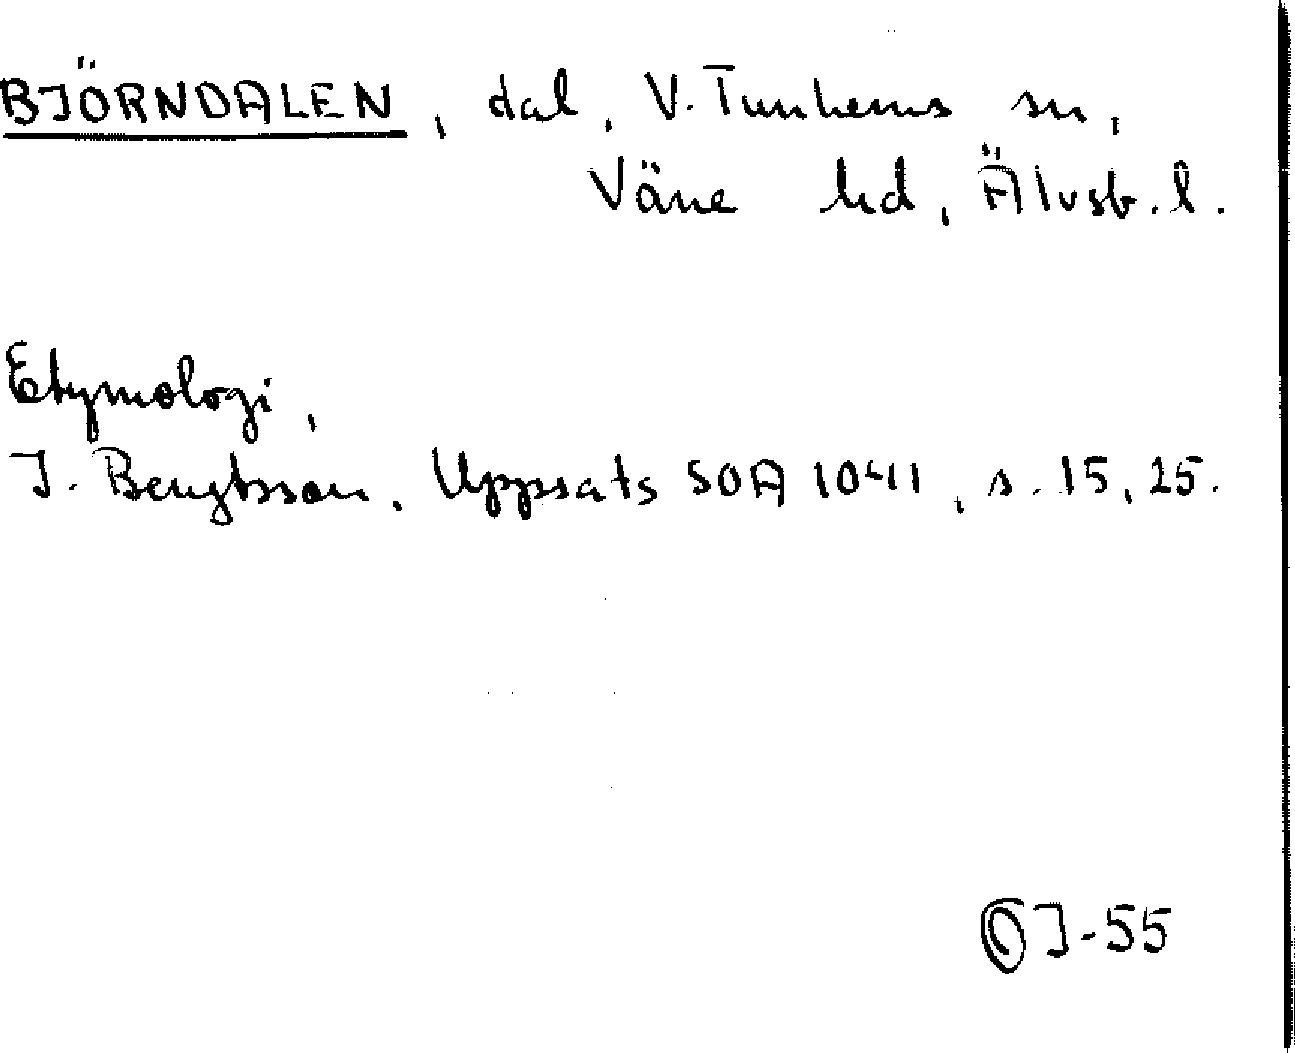 BJÖRNDALEN, dal, V. Tunhems sn,
Väne hd, Älvsb. l.
Etymologi,
I. Bengtsson, Uppsats SOA 1041, s. 15, 25.
OJ-55